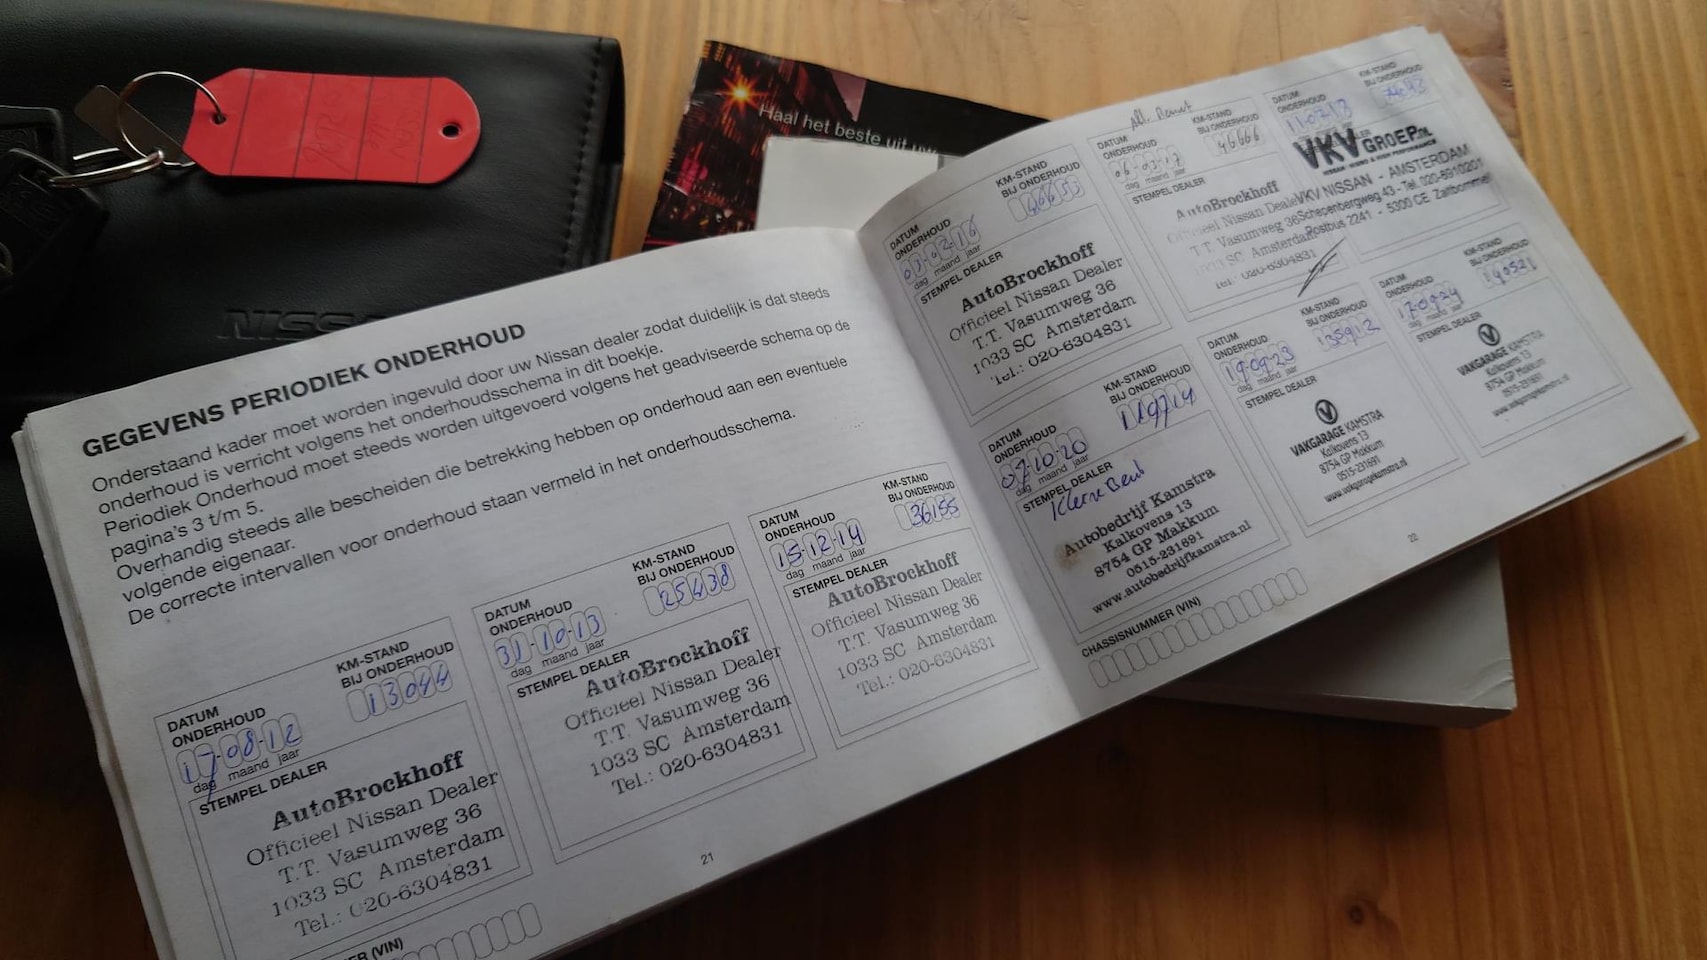 Haal het beste uit uw
NISS
GEGEVENS PERIODIEK ONDERHOUD
Onderstaand kader moet worden ingevuld door uw Nissan dealer zodat duidelijk is dat steeds
onderhoud is verricht volgens het onderhoudsschema in dit boekje.
Periodiek Onderhoud moet steeds worden uitgevoerd volgens het geadviseerde schema op de
pagina's 3 t/m 5.
Overhandig steeds alle bescheiden die betrekking hebben op onderhoud aan een eventuele
volgende eigenaar.
De correcte intervallen voor onderhoud staan vermeld in het onderhoudsschema.
DATUM
ONDERHOUD
KM-STAND
BIJ ONDERHOUD
17-08-12
13044
dag maand jaar
STEMPEL DEALER
AutoBrockhoff
Officieel Nissan Dealer
T.T. Vasumweg 36
1033 SC Amsterdam
Tel.: 020-6304831
DATUM
ONDERHOUD
KM-STAND
BIJ ONDERHOUD
31-10-13
25438
dag maand jaar
STEMPEL DEALER
AutoBrockhoff
Officieel Nissan Dealer
T.T. Vasumweg 36
1033 SC Amsterdam
Tel.: 020-6304831
DATUM
ONDERHOUD
KM-STAND
BIJ ONDERHOUD
15-12-14
36155
dag maand jaar
STEMPEL DEALER
AutoBrockhoff
Officieel Nissan Dealer
T.T. Vasumweg 36
1033 SC Amsterdam
Tel.: 020-6304831
(VIN)
21
DATUM
ONDERHOUD
KM-STAND
BIJ ONDERHOUD
03-02-16
46653
dag maand jaar
STEMPEL DEALER
AutoBrockhoff
Officieel Nissan Dealer
T.T. Vasumweg 36
1033 SC Amsterdam
Tel.: 020-6304831
DATUM
ONDERHOUD
KM-STAND
BIJ ONDERHOUD
06-03-17
46666
dag maand jaar
STEMPEL DEALER
AutoBrockhoff
Officieel Nissan Deale
T.T. Vasumweg 36
1033 SC Amsterda
Tel.: 020-6304831
DATUM
ONDERHOUD
KM-STAND
BIJ ONDERHOUD
VKV GROEP.NL
VKV NISSAN - AMSTERDAM
Schepenbergweg 43 - Tel. 020-6910201
Postbus 2241 - 5300 CE Zaltbommel
DATUM
ONDERHOUD
KM-STAND
BIJ ONDERHOUD
07-10-20
119714
dag maand jaar
STEMPEL DEALER
Kleine Beurt
Autobedrijf Kamstra
Kalkovens 13
8754 GP Makkum
0515-231691
www.autobedrijfkamstra.nl
DATUM
ONDERHOUD
KM-STAND
BIJ ONDERHOUD
19-09-23
135912
dag maand jaar
STEMPEL DEALER
VAKGARAGE KAMSTRA
Kalkovens 13
8754 GP Makkum
0515-231691
www.vakgaragekamstra.nl
DATUM
ONDERHOUD
KM-STAND
BIJ ONDERHOUD
17-09-24
140521
dag maand jaar
STEMPEL DEALER
VAKGARAGE KAMSTRA
Kalkovens 13
8754 GP Makkum
0515-231691
www.vakgaragekamstra.nl
CHASSISNUMMER (VIN)
22